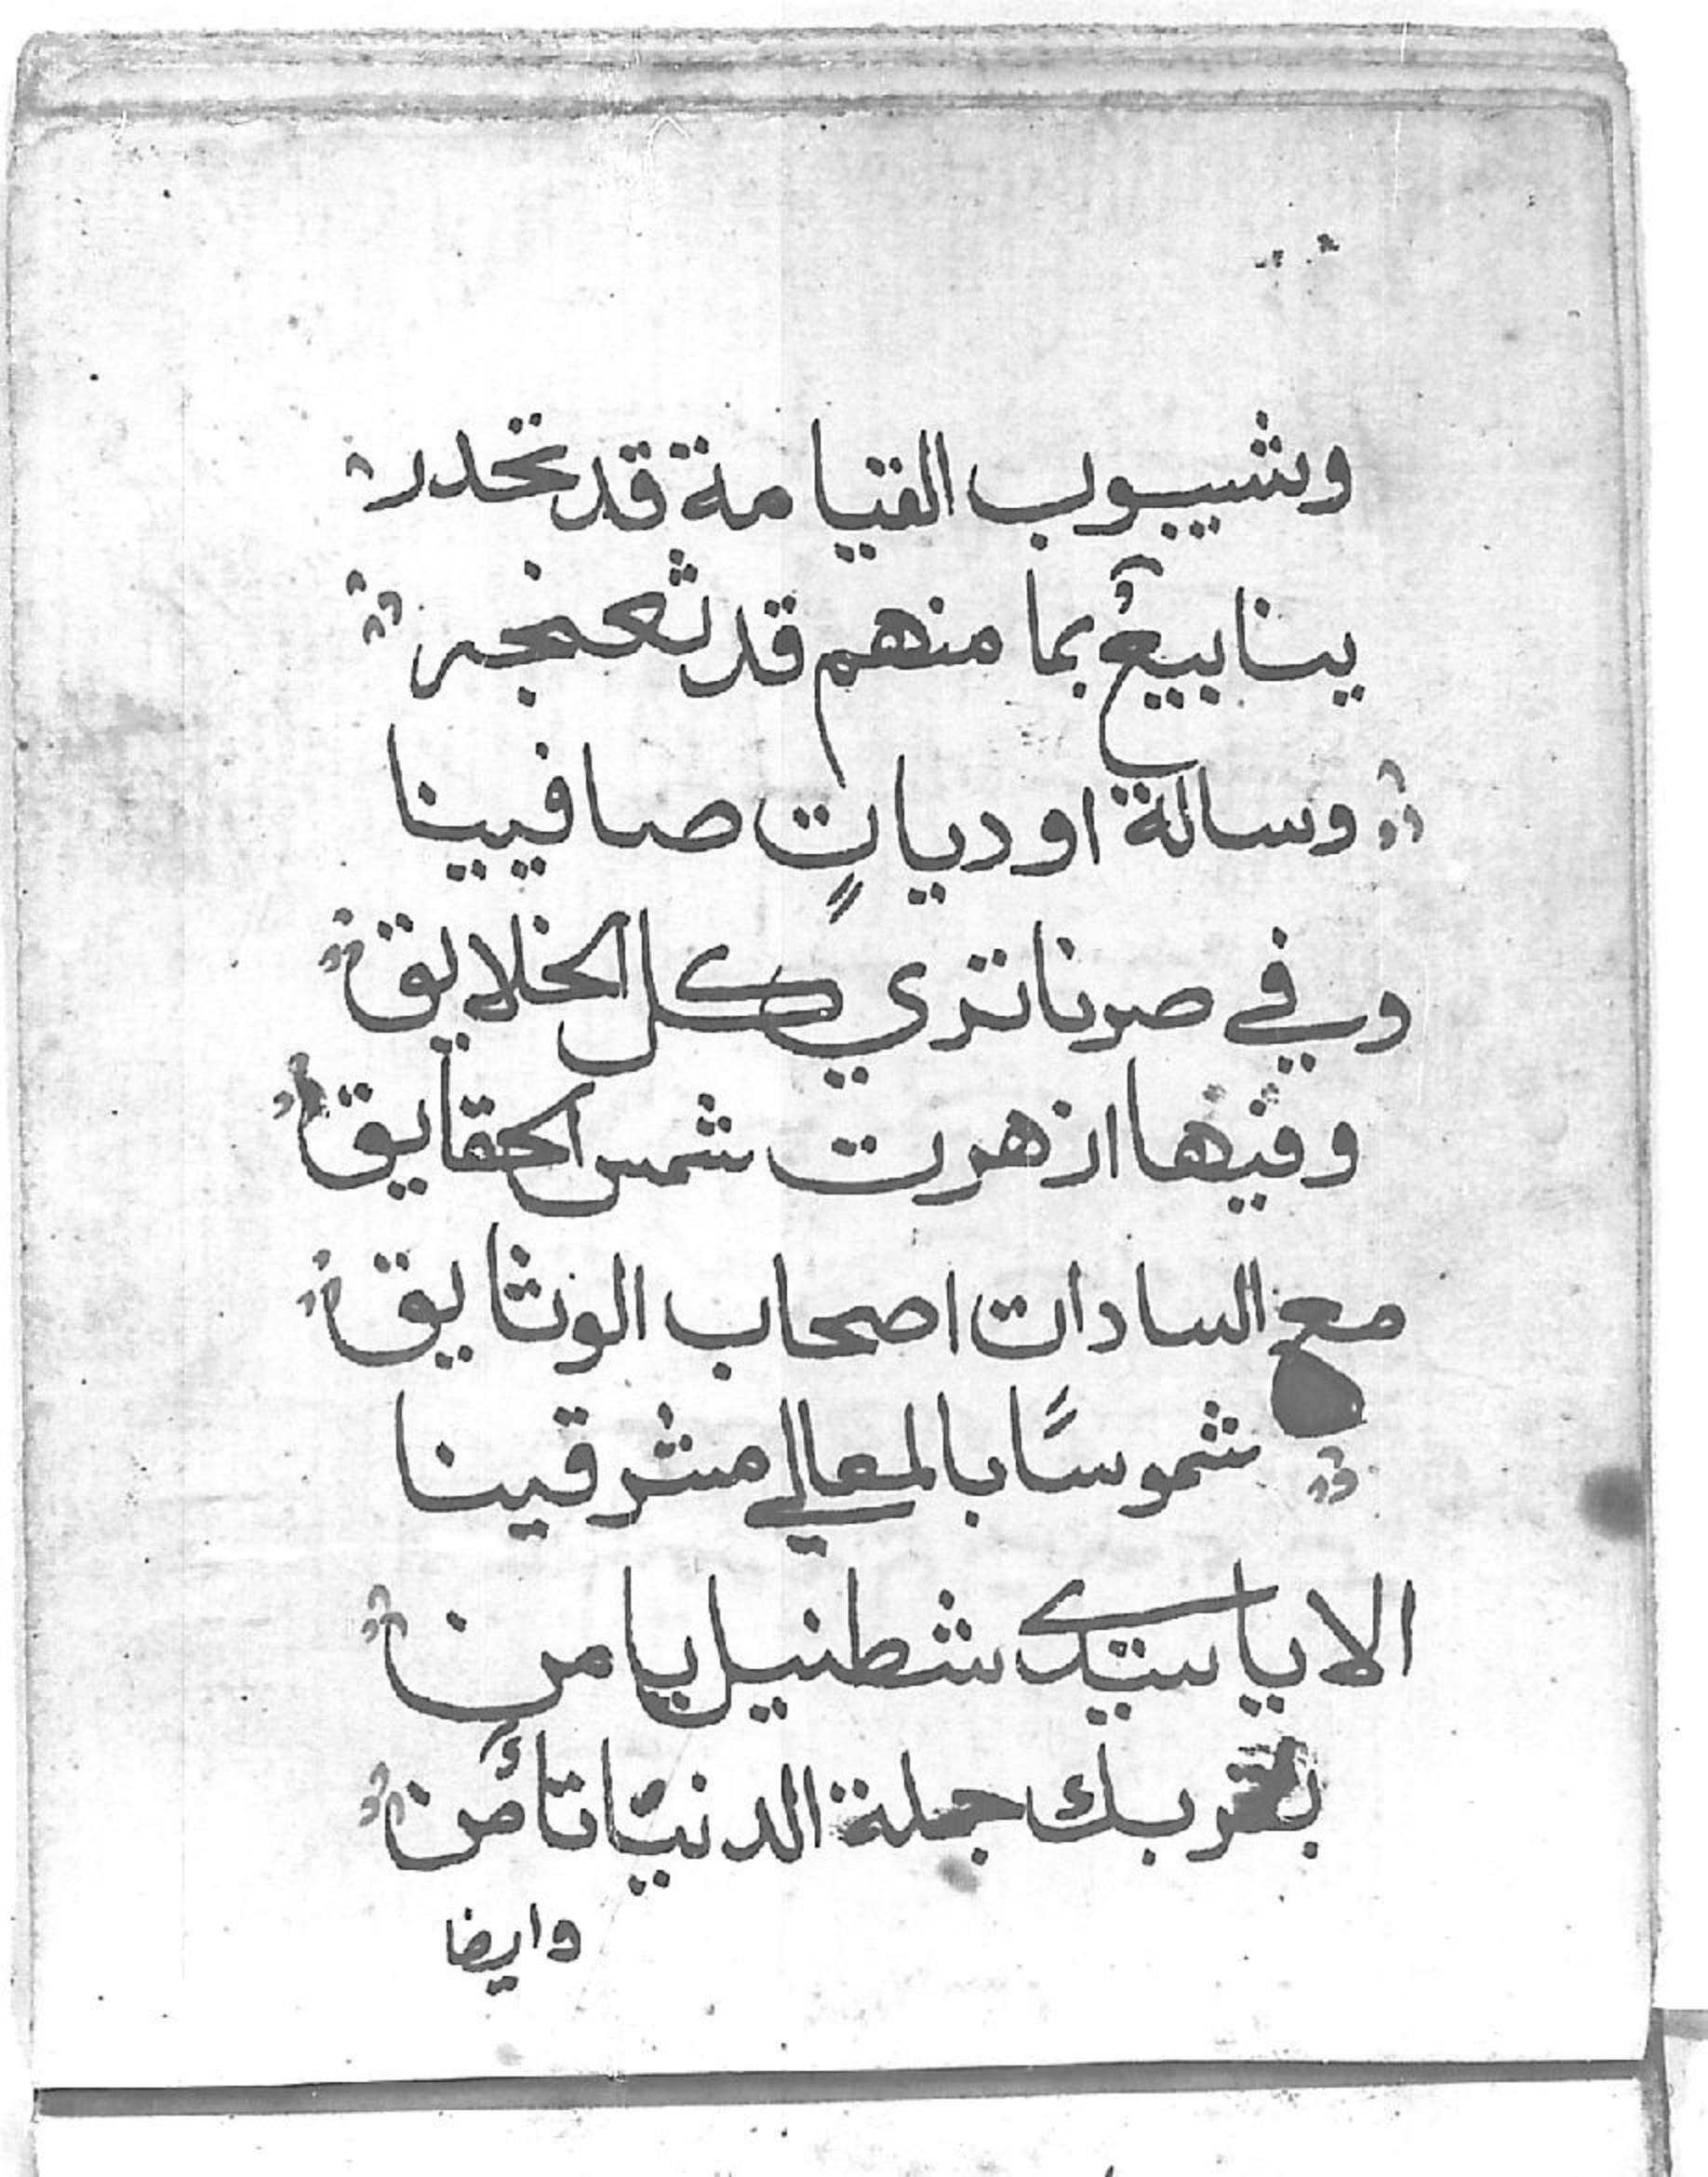 وشيبوب القيامة قد تحدر
ينابيعٌ بما منهم قد ثعنجر
وسالة اودياتٍ صافيينا
وفي صرنا تري كل الخلايق
وفيها ازهرت شمس الحقايق
مع السادات اصحاب الوثايق
شموسًا بالمعالي مشرقينا
الا يا سيدي شطنيل يا من
بقربك جملة الدنيا تأمن
وايضا